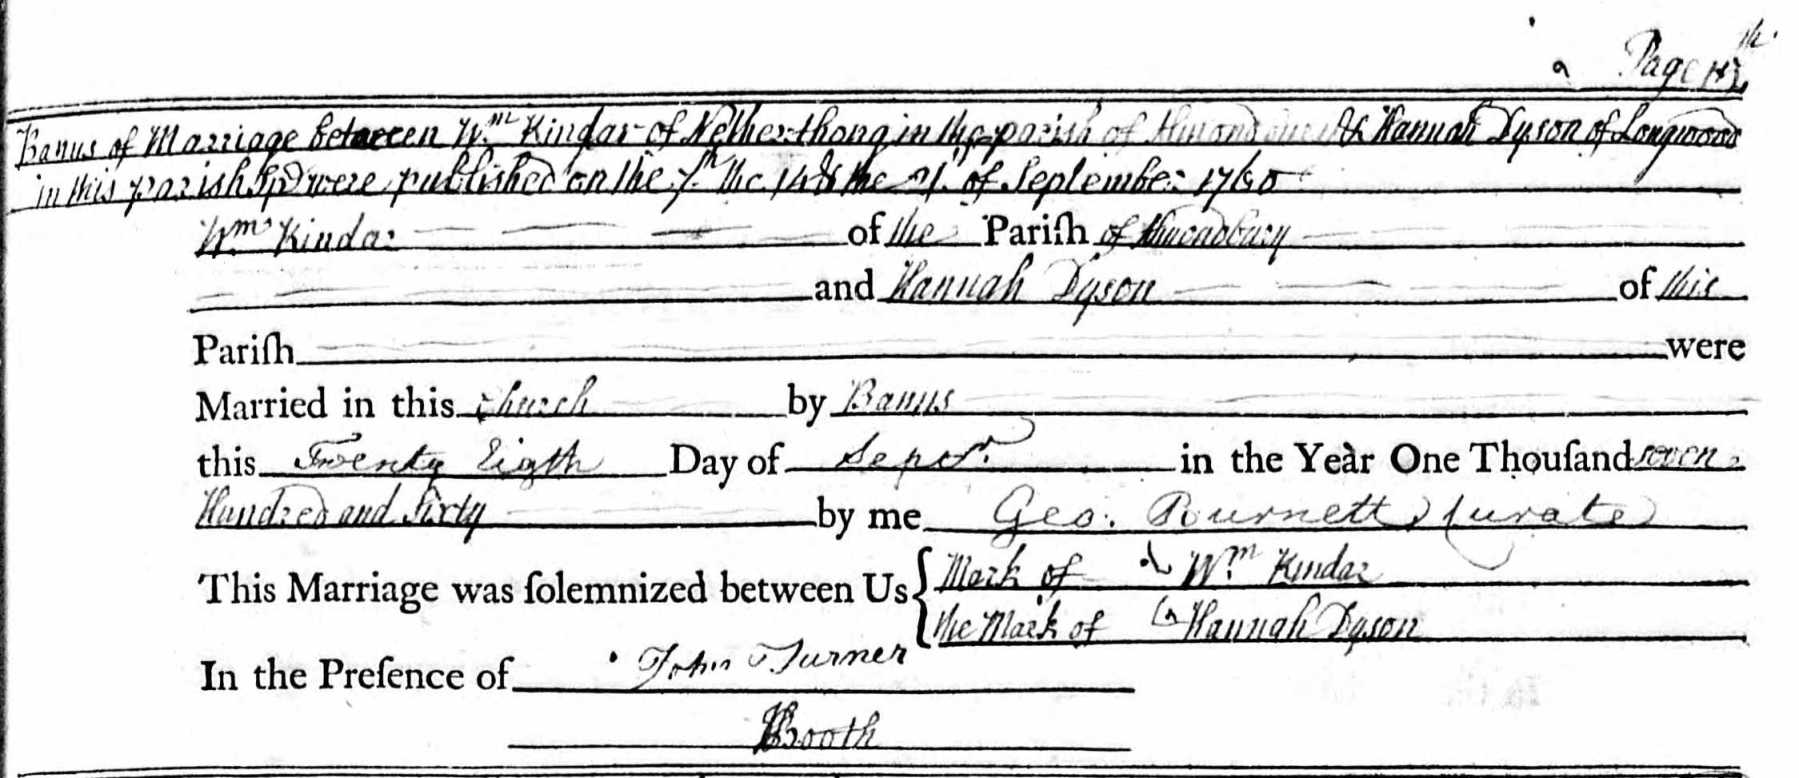 a Page
Banns of Marriage between Wm Kindar of Netherthong in the parish of & Hannah Dyson of Longwood
in this parish were published on the 7th the 14 & the 21st of September 1760
Wm Kindar of the Pariſh of
and Hannah Dyson of this
Pariſh were
Married in this Church by Banns
this Twenty Eigth Day of Sepr. in the Year One Thouſand seven
Hundred and Sixty by me Geo: Burnett Curate
This Marriage was ſolemnized between Us { Mark of Wm Kindar
the Mark of Hannah Dyson
In the Preſence of John Turner
Booth